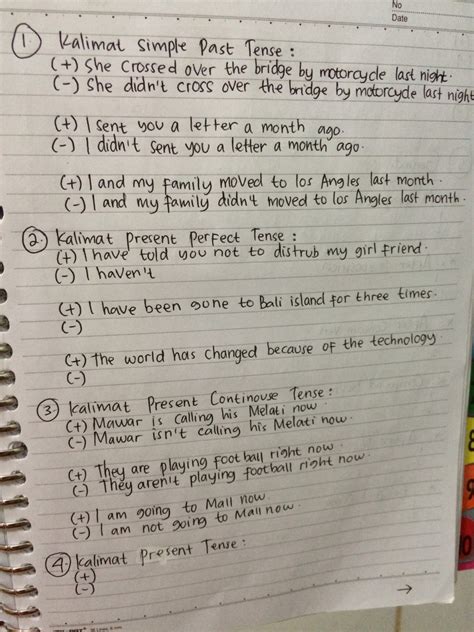 No
Date
① Kalimat Simple Past Tense :
(+) She crossed over the bridge by motorcycle last night.
(-) She didn't cross over the bridge by motorcycle last night
(+) I sent you a letter a month ago.
(-) I didn't sent you a letter a month ago.
(+) I and my family moved to los Angles last month.
(-) I and my family didn't moved to los Angles last month.
② Kalimat Present Perfect Tense :
(+) I have told you not to distrub my girl friend.
(-) I haven't
(+) I have been gone to Bali island for three times.
(-)
(+) The world has changed because of the technology
(-)
③ Kalimat Present Continouse Tense :
(+) Mawar is calling his Melati now.
(-) Mawar isn't calling his Melati now.
(+) They are playing football right now.
(-) They aren't playing football right now.
(+) I am going to Mall now.
(-) I am not going to Mall now.
④ Kalimat Present Tense :
(+)
(-)
→